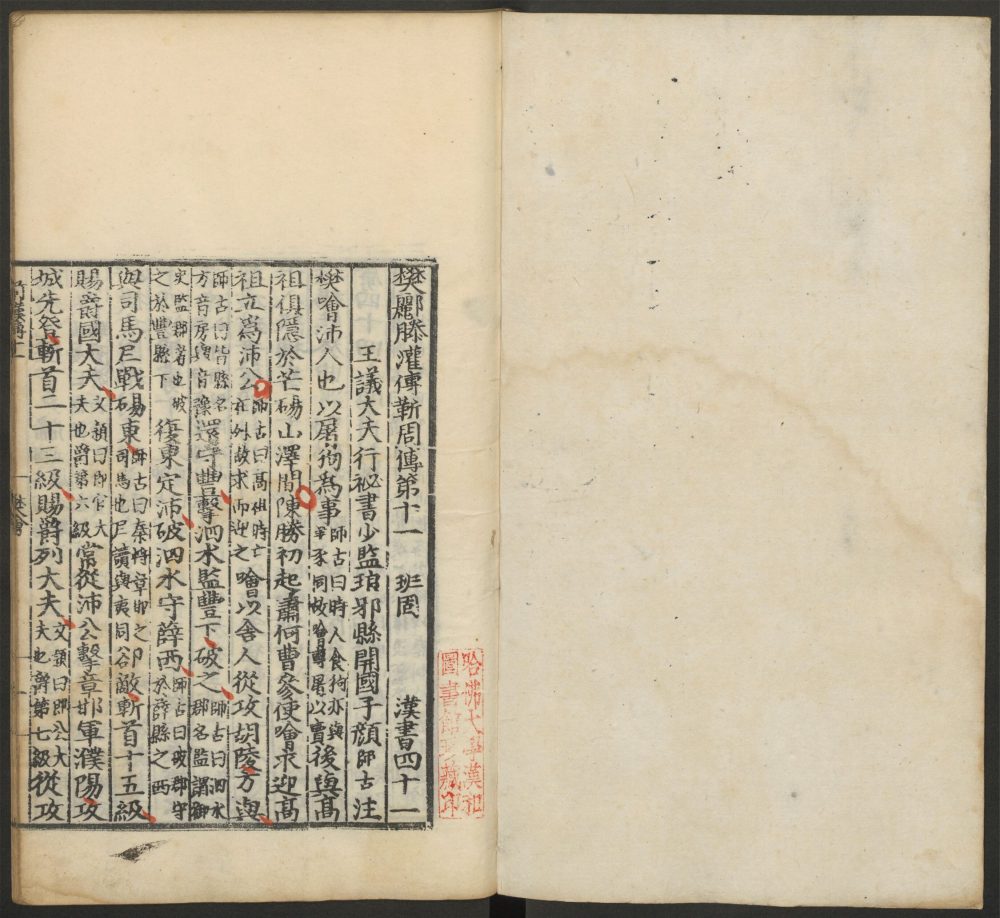 樊酈滕灌傅靳周傳第十一 班固 漢書四十一
王議大夫行祕書少監琅邪縣開國子顔師古注
樊噲沛人也以屠狗爲事師古曰時人食狗亦與羊豕同故噲專屠以賣後與高
祖俱隱於芒碭山澤間陳勝初起蕭何曹參使噲求迎高
祖立爲沛公師古曰高祖時亡在外故求而迎之噲以舍人從攻胡陵方與
師古曰皆縣名方音房與音豫還守豐擊泗水監豐下破之師古曰泗水郡名監謂御
史監郡者也破之於豐縣下復東定沛破泗水守薛西師古曰破郡守於薛縣之西
與司馬𡰥戰碭東師古曰秦將章邯之司馬也𡰥讀與夷同卻敵斬首十五級
賜爵國大夫文穎曰即官大夫也爵第六級常從沛公擊章邯軍濮陽攻
城先登斬首二十三級賜爵列大夫文穎曰即公大夫也爵第七級從攻
前漢傳十一
樊噲
哈佛大學漢和
圖書館珍藏印